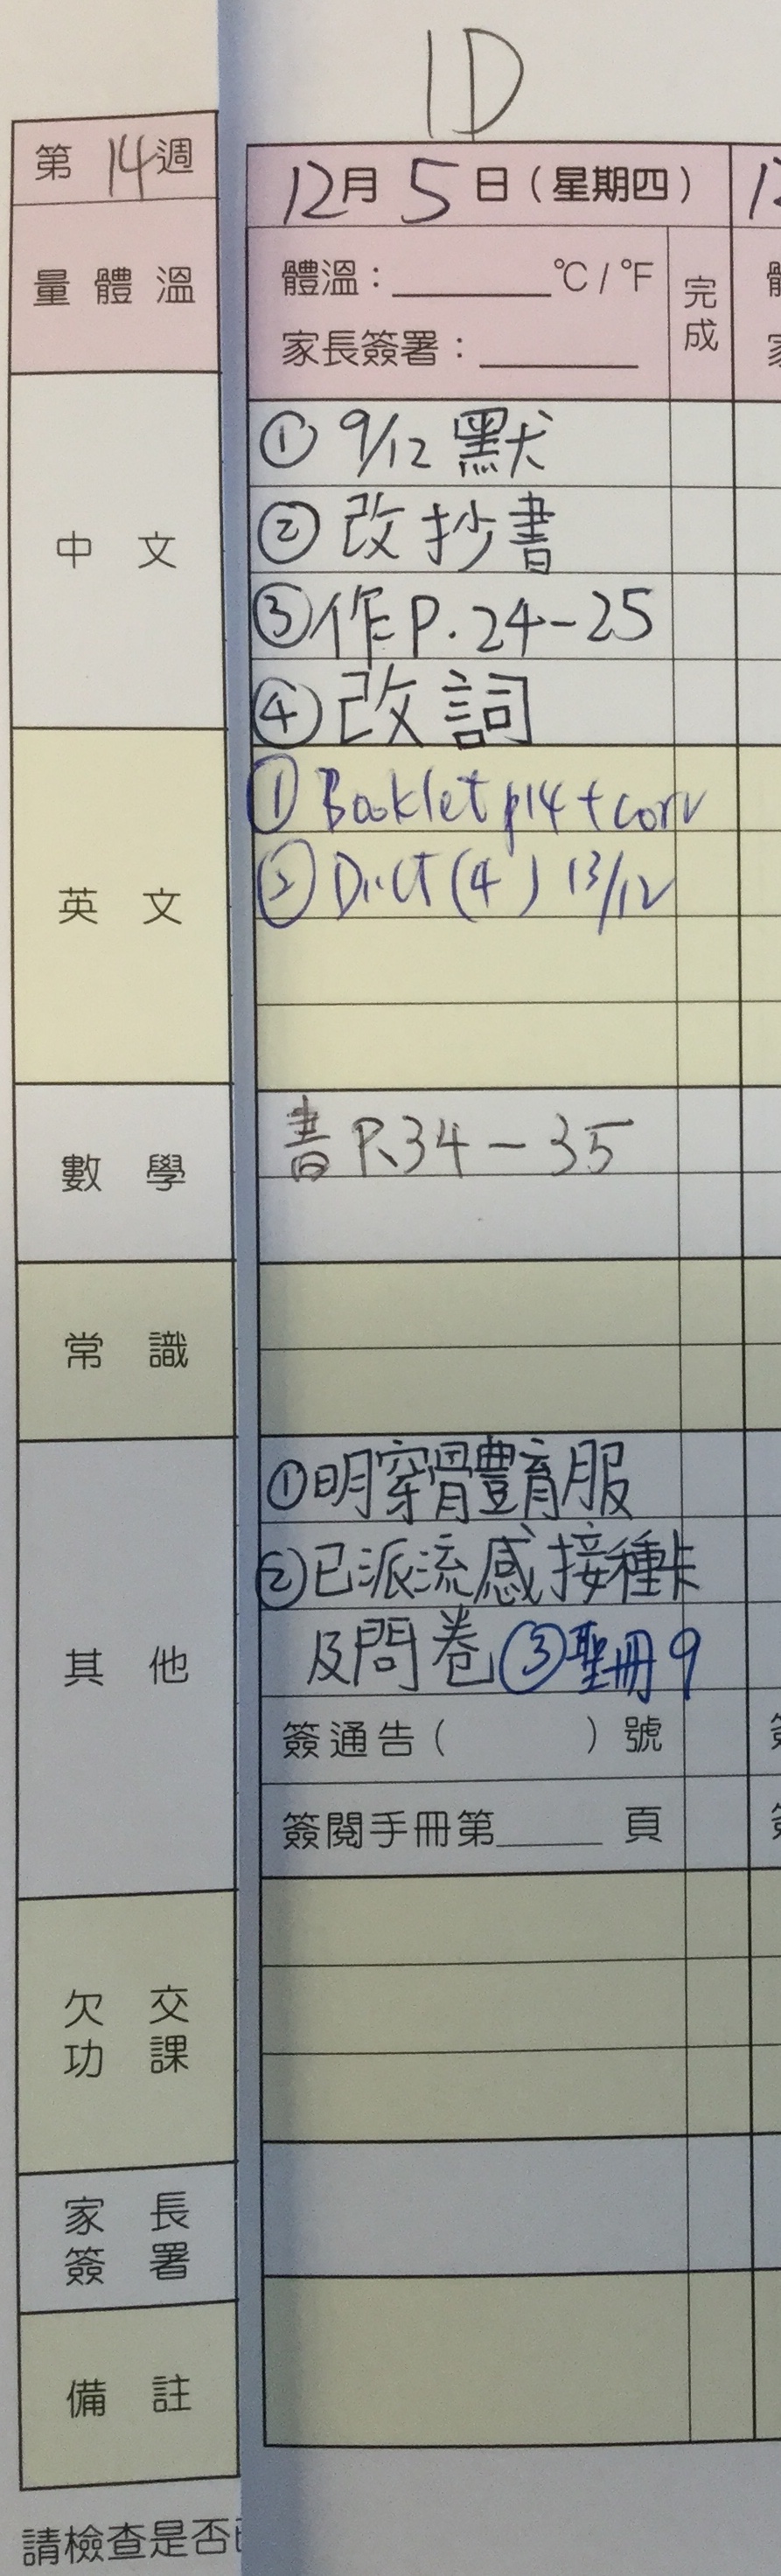 1D
第 14 週
12月 5 日（星期四）
量 體 溫
體溫：______°C / °F
家長簽署：______
完成
中 文
① 9/12 默
② 改抄書
③ 作 P. 24-25
④ 改詞
英 文
① Booklet p14 + corr
② Dict (4) 13/12
數 學
書 P.34-35
常 識
其 他
① 明穿體育服
② 已派流感接種卡
及問卷 ③ 聖冊 9
簽通告（　　　）號
簽閱手冊第____頁
欠 交
功 課
家 長
簽 署
備 註
請檢查是否